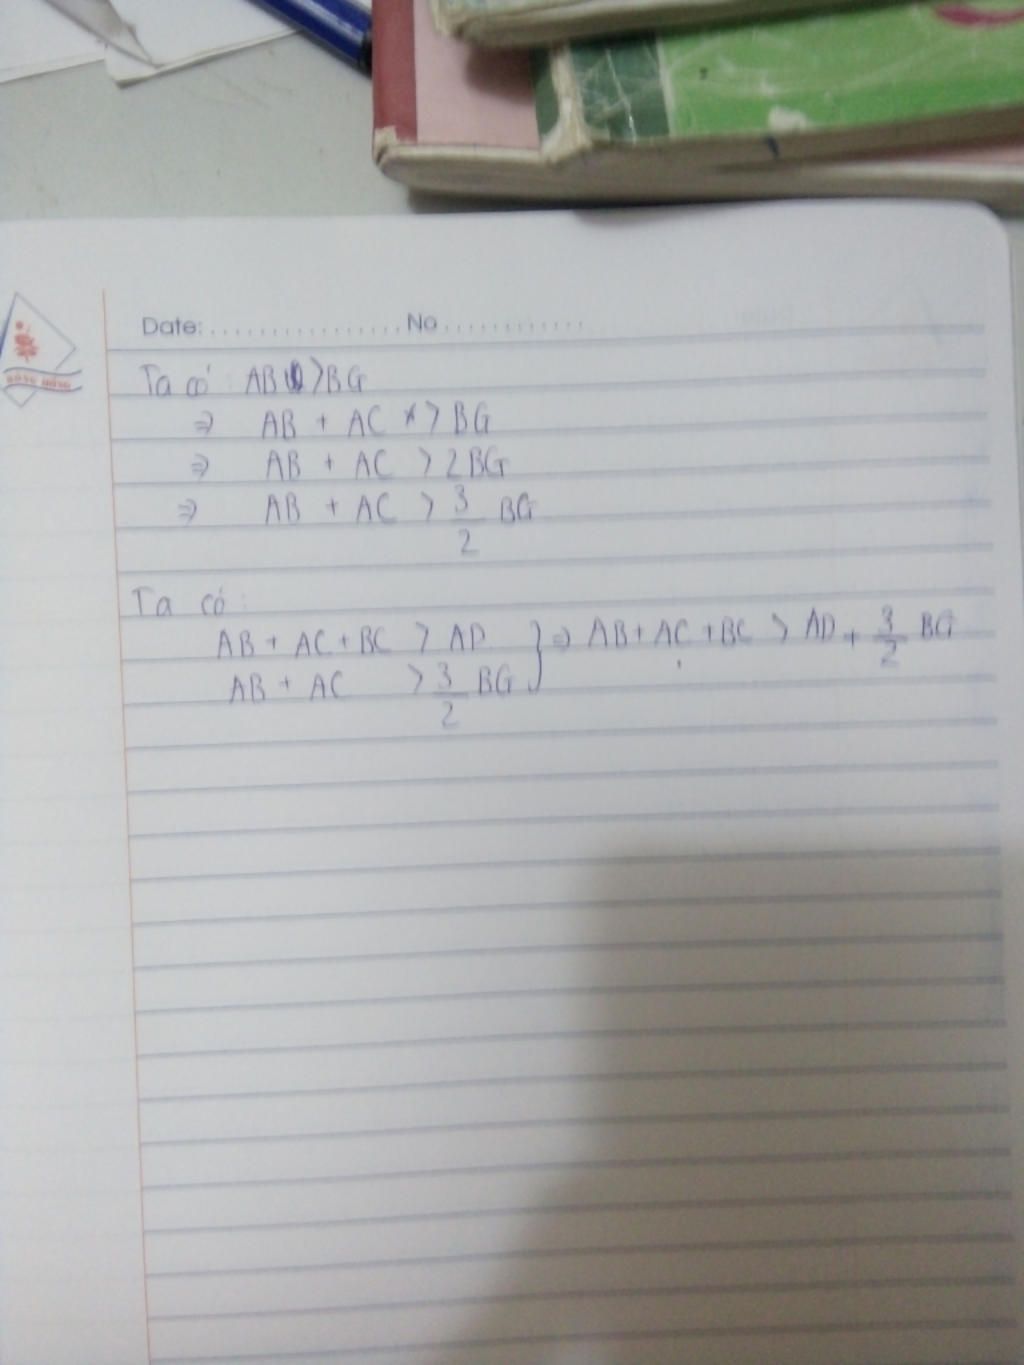 Date: ................ No ............
HỒNG HÀ
Ta có : AB > BG
⇒ AB + AC > BG
⇒ AB + AC > 2BG
⇒ AB + AC > 3/2 BG
Ta có :
AB + AC + BC > AD } ⇒ AB + AC + BC > AD + 3/2 BG
AB + AC > 3/2 BG